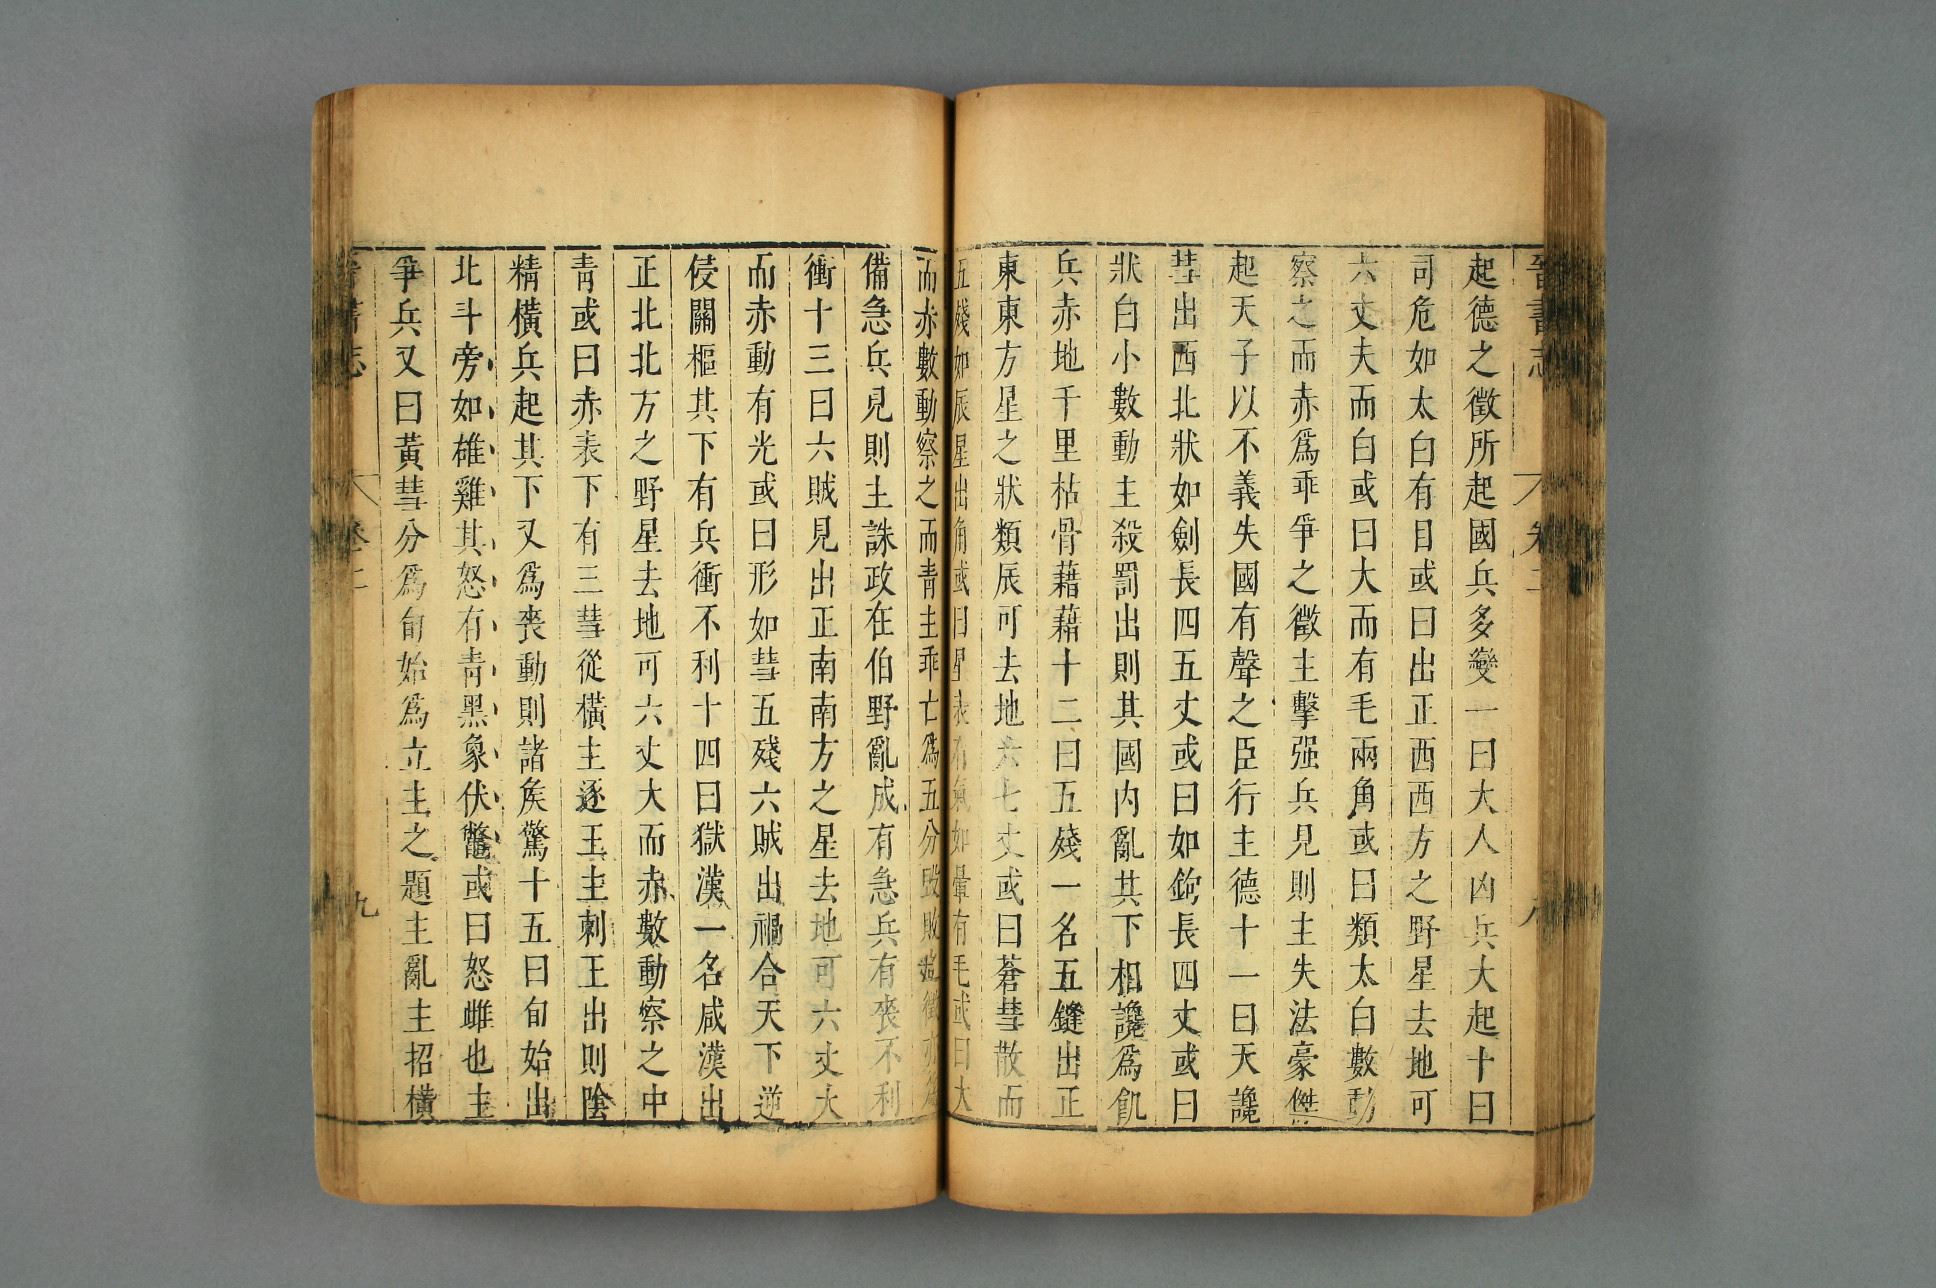 晉書志 卷二 八
起德之徵所起國兵多變一曰大人凶兵大起十曰
司危如太白有目或曰出正西西方之野星去地可
六丈大而白或曰大而有毛兩角或曰類太白數動
察之而赤爲乖爭之徵主擊强兵見則主失法豪傑
起天子以不義失國有聲之臣行主德十一曰天讒
彗出西北狀如劍長四五丈或曰如鉤長四丈或曰
狀白小數動主殺罰出則其國內亂其下相讒爲飢
兵赤地千里枯骨藉藉十二曰五殘一名五鏠出正
東東方星之狀類辰可去地六七丈或曰蒼彗散而
五殘如辰星出角或曰星表有氣如暈有毛或曰大
而赤數動察之而青主乖亡爲五分毀敗之徵亦爲
備急兵見則主誅政在伯野亂成有急兵有喪不利
衝十三曰六賊見出正南南方之星去地可六丈大
而赤動有光或曰形如彗五殘六賊出禍合天下逆
侵關樞其下有兵衝不利十四曰獄漢一名咸漢出
正北北方之野星去地可六丈大而赤數動察之中
青或曰赤表下有三彗從橫主逐王主刺王出則陰
精橫兵起其下又爲喪動則諸矦驚十五曰旬始出
北斗旁如雄雞其怒有青黑象伏鼈或曰怒雌也主
爭兵又曰黃彗分爲旬始爲立主之題主亂主招橫
晉書志 卷二 九